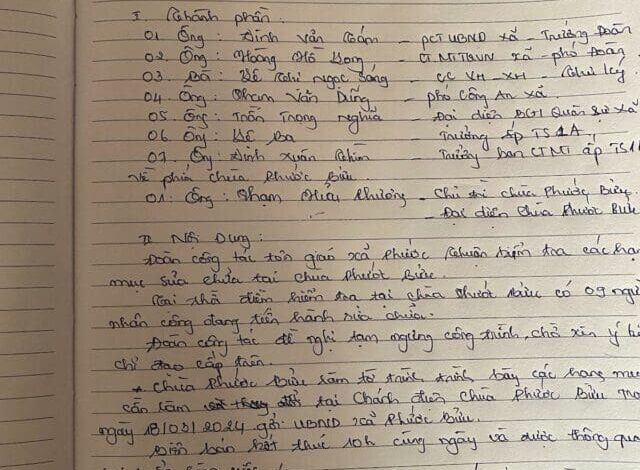 I. Thành phần:
01 Ông: Đinh Văn Cám – PCT UBND xã – Trưởng Đoàn
02. Ông: Hoàng Hồ Long – CTMTTQVN xã – phó Đoàn
03. Bà: Lê Thị Ngọc Sáng – CC VH – XH – Thư ký
04. Ông: Phạm Văn Dũng – phó Công An xã
05. Ông: Trần Trọng Nghĩa – Đại diện BCH Quân sự xã
06. Ông: Lê Ba Trưởng ấp TS1A
07. Ông: Đinh Xuân – Trưởng ban CTMT ấp TS1A
Về phía chùa Phước Bửu.
01. Ông: Phạm Hữu Phương – Chủ trì chùa Phước Bửu
– Đại diện Chùa Phước Bửu
II Nội Dung:
Đoàn công tác tôn giáo xã Phước Thuận kiểm tra các hạ
mục sửa chữa tại chùa Phước Bửu.
Tại thời điểm kiểm tra tại chùa Phước Bửu có 09 ngư
nhân công đang tiến hành sửa chữa.
Đoàn công tác đề nghị tạm ngừng công trình, chờ xin ý
chỉ đạo cấp trên.
* Chùa Phước Bửu làm tờ trình trình bày các hạng mục
cần làm tại Chánh điện chùa Phước Bửu
ngày 18/03/2024 gởi UBND xã Phước Bửu.
Biên bản kết thúc 10h cùng ngày và được thông qua